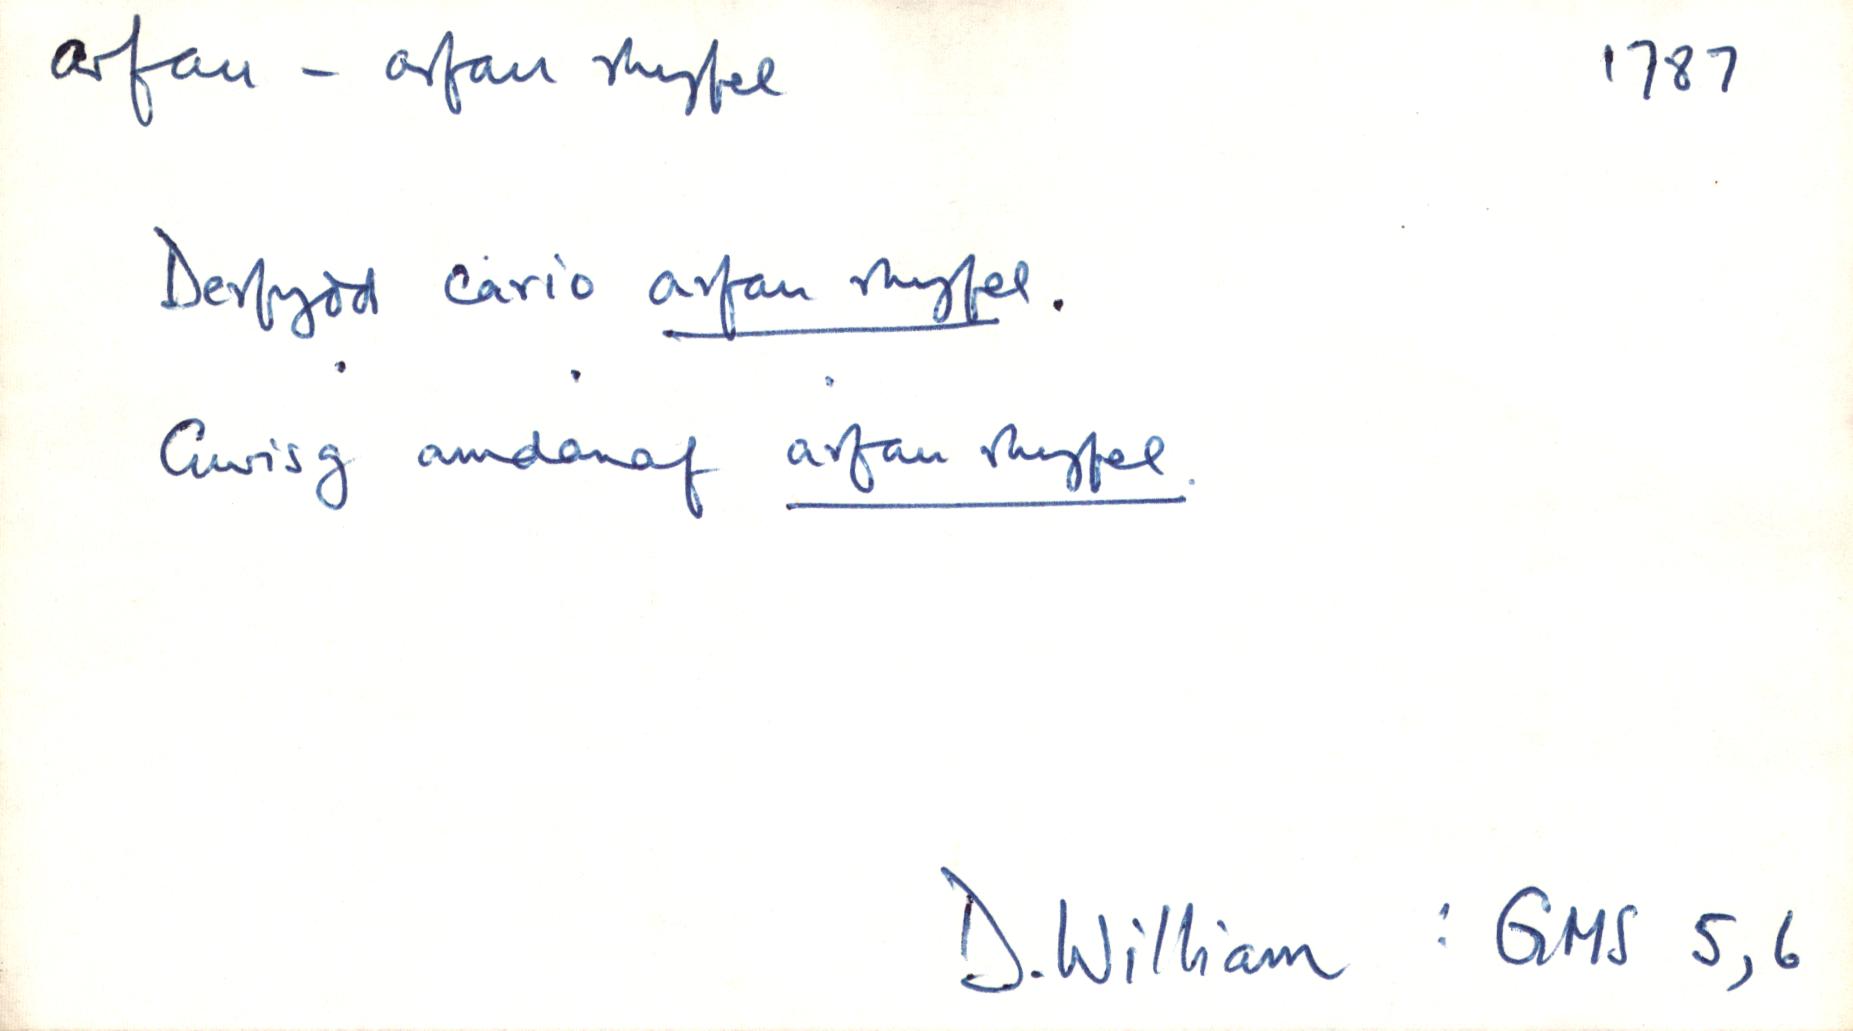 arfau - arfau rhyfel 1787
Derfydd cario arfau rhyfel.
. . .
Gwisg amdanaf arfau rhyfel.
D. William : GMS 5,6